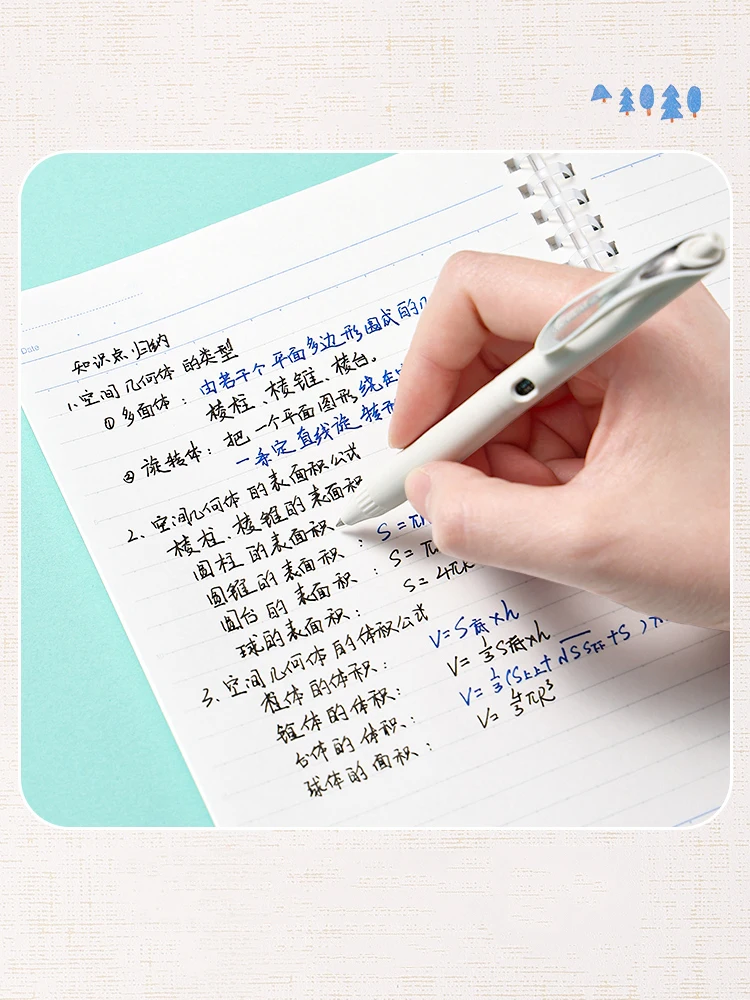 Date
知识点归纳
1.空间几何体的类型
①多面体：由若干个平面多边形围成的几
棱柱、棱锥、棱台。
②旋转体：把一个平面图形绕在
一条定直线旋转形
2.空间几何体的表面积公式
棱柱、棱锥的表面积
圆柱的表面积
圆锥的表面积：S=π
圆台的表面积：S=π
球的表面积：S=4πR
3.空间几何体的体积公式
柱体的体积：V=S底×h
锥体的体积：V=1/3S底×h
台体的体积：V=1/3(S上+√SS下+S)×
球体的面积：V=4/3πR³